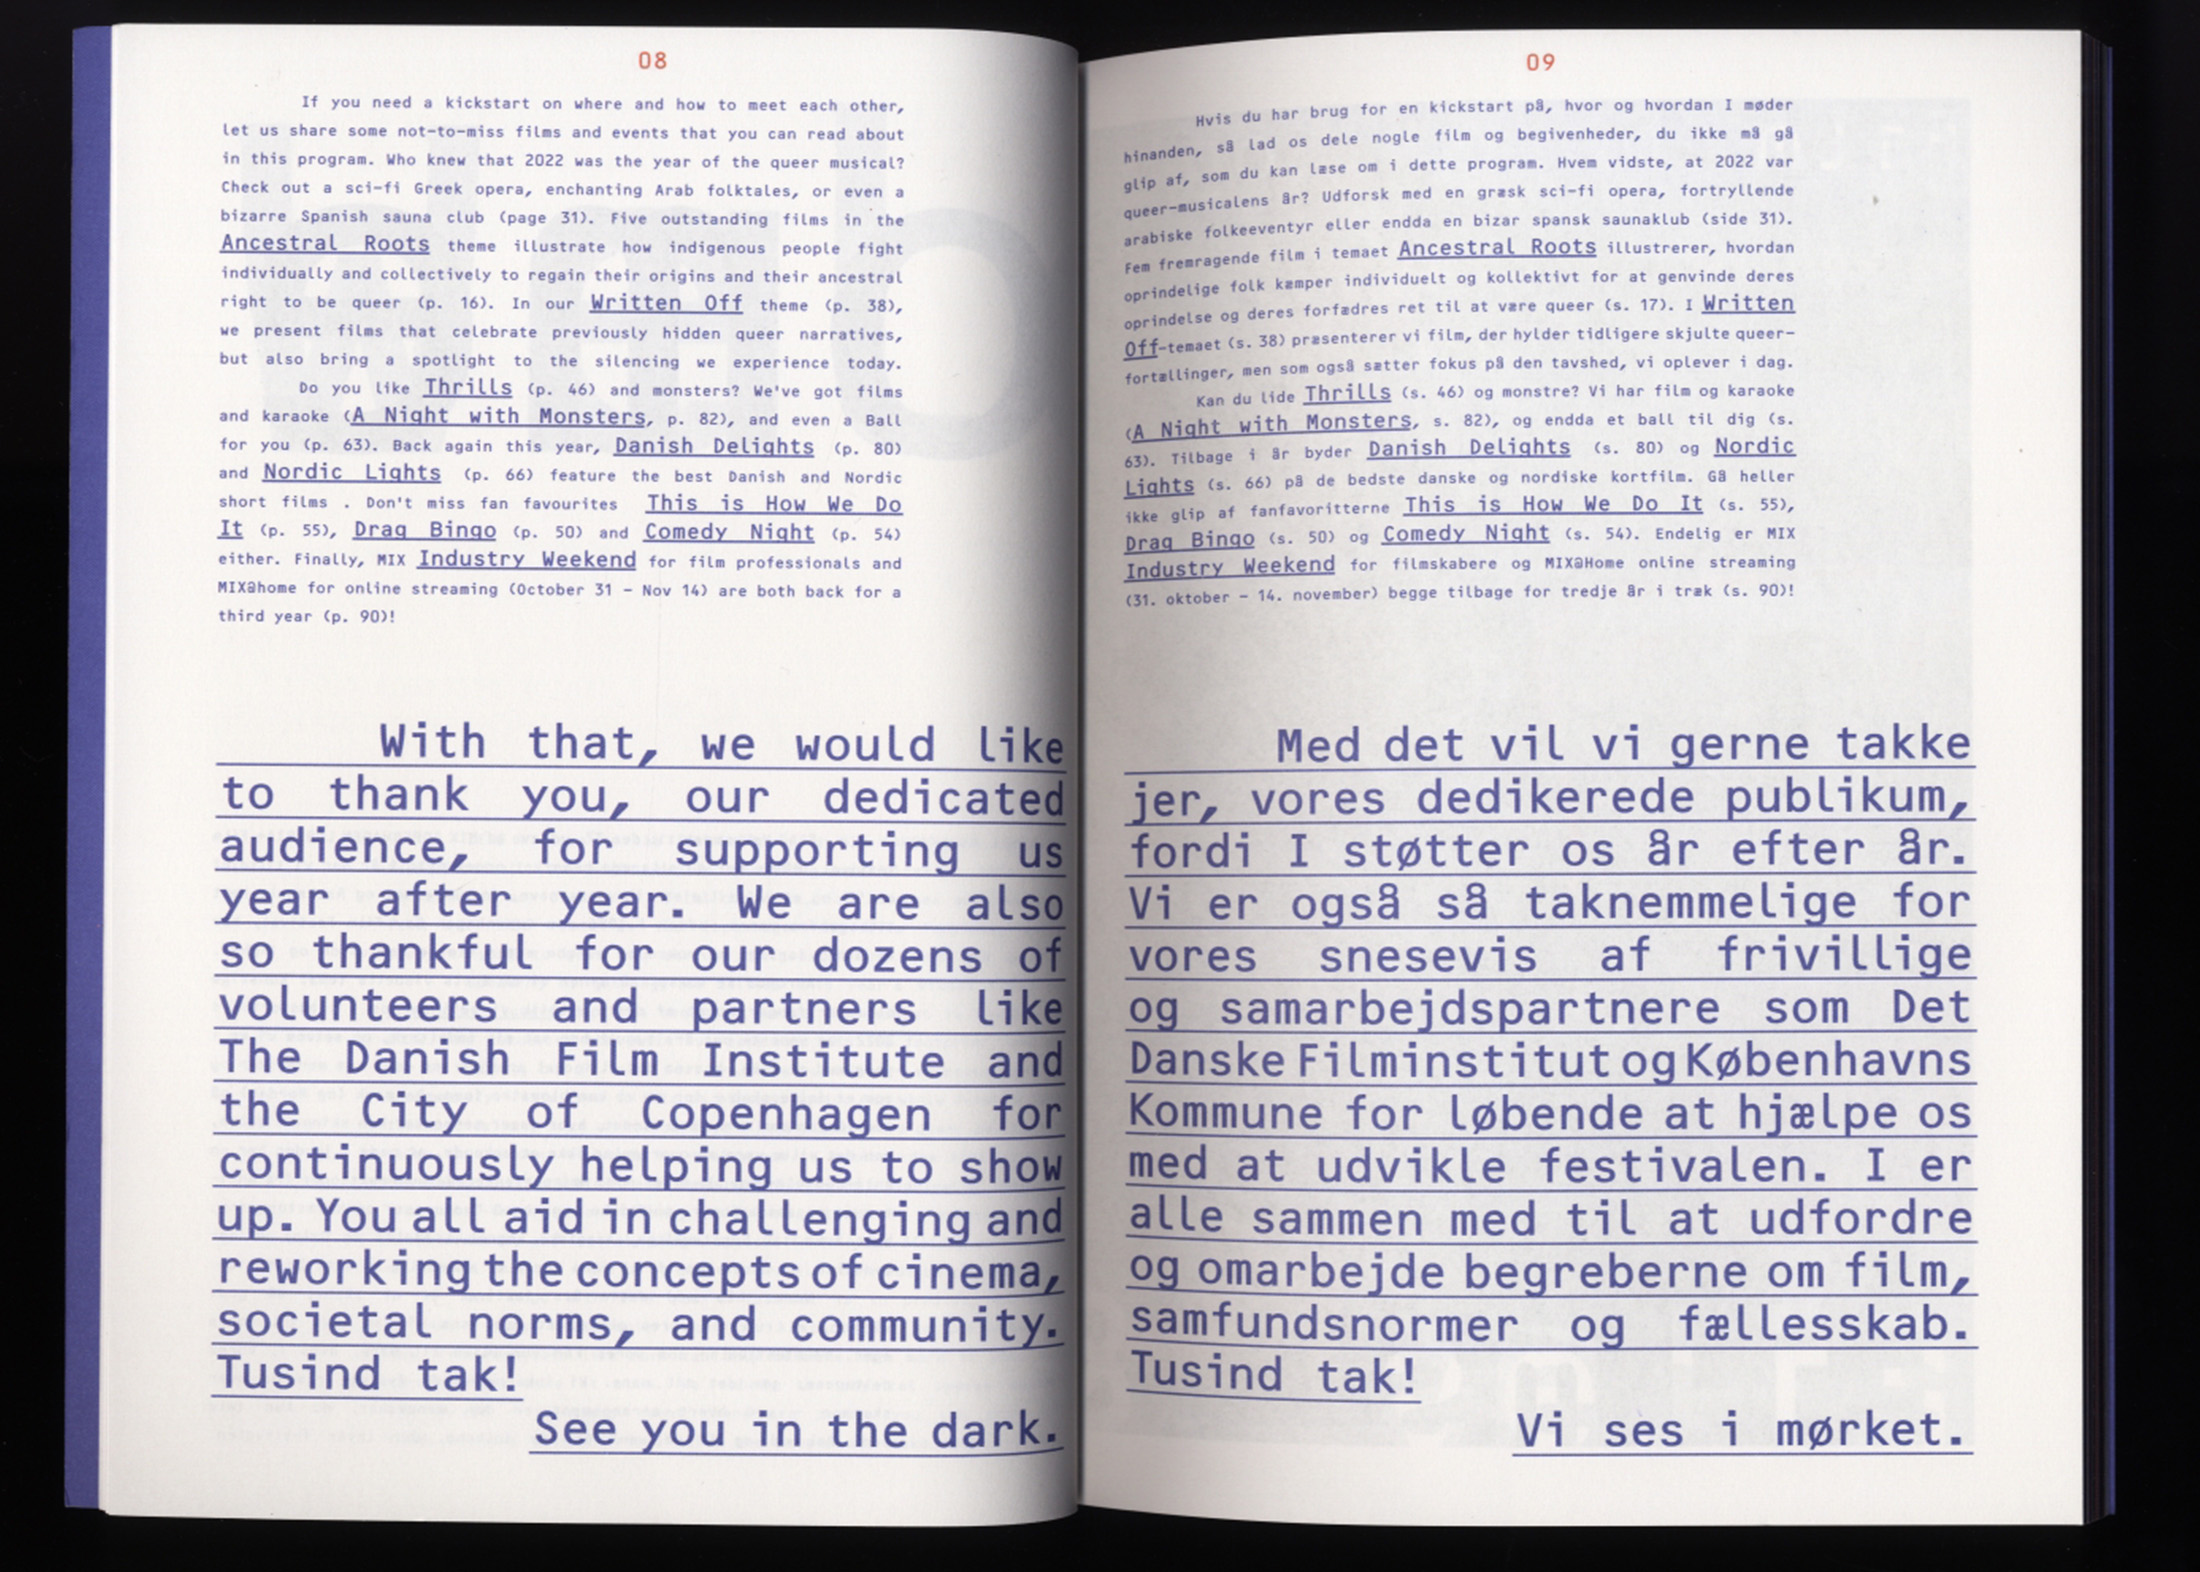 08
If you need a kickstart on where and how to meet each other,
let us share some not-to-miss films and events that you can read about
in this program. Who knew that 2022 was the year of the queer musical?
Check out a sci-fi Greek opera, enchanting Arab folktales, or even a
bizarre Spanish sauna club (page 31). Five outstanding films in the
Ancestral Roots theme illustrate how indigenous people fight
individually and collectively to regain their origins and their ancestral
right to be queer (p. 16). In our Written Off theme (p. 38),
we present films that celebrate previously hidden queer narratives,
but also bring a spotlight to the silencing we experience today.
Do you like Thrills (p. 46) and monsters? We've got films
and karaoke (A Night with Monsters, p. 82), and even a Ball
for you (p. 63). Back again this year, Danish Delights (p. 80)
and Nordic Lights (p. 66) feature the best Danish and Nordic
short films . Don't miss fan favourites This is How We Do
It (p. 55), Drag Bingo (p. 50) and Comedy Night (p. 54)
either. Finally, MIX Industry Weekend for film professionals and
MIX@home for online streaming (October 31 – Nov 14) are both back for a
third year (p. 90)!
With that, we would like
to thank you, our dedicated
audience, for supporting us
year after year. We are also
so thankful for our dozens of
volunteers and partners like
The Danish Film Institute and
the City of Copenhagen for
continuously helping us to show
up. You all aid in challenging and
reworking the concepts of cinema,
societal norms, and community.
Tusind tak!
See you in the dark.
09
Hvis du har brug for en kickstart på, hvor og hvordan I møder
hinanden, så lad os dele nogle film og begivenheder, du ikke må gå
glip af, som du kan læse om i dette program. Hvem vidste, at 2022 var
queer-musicalens år? Udforsk med en græsk sci-fi opera, fortryllende
arabiske folkeeventyr eller endda en bizar spansk saunaklub (side 31).
Fem fremragende film i temaet Ancestral Roots illustrerer, hvordan
oprindelige folk kæmper individuelt og kollektivt for at genvinde deres
oprindelse og deres forfædres ret til at være queer (s. 17). I Written
Off-temaet (s. 38) præsenterer vi film, der hylder tidligere skjulte queer-
fortællinger, men som også sætter fokus på den tavshed, vi oplever i dag.
Kan du lide Thrills (s. 46) og monstre? Vi har film og karaoke
(A Night with Monsters, s. 82), og endda et ball til dig (s.
63). Tilbage i år byder Danish Delights (s. 80) og Nordic
Lights (s. 66) på de bedste danske og nordiske kortfilm. Gå heller
ikke glip af fanfavoritterne This is How We Do It (s. 55),
Drag Bingo (s. 50) og Comedy Night (s. 54). Endelig er MIX
Industry Weekend for filmskabere og MIX@Home online streaming
(31. oktober – 14. november) begge tilbage for tredje år i træk (s. 90)!
Med det vil vi gerne takke
jer, vores dedikerede publikum,
fordi I støtter os år efter år.
Vi er også så taknemmelige for
vores snesevis af frivillige
og samarbejdspartnere som Det
Danske Filminstitut og Københavns
Kommune for løbende at hjælpe os
med at udvikle festivalen. I er
alle sammen med til at udfordre
og omarbejde begreberne om film,
samfundsnormer og fællesskab.
Tusind tak!
Vi ses i mørket.